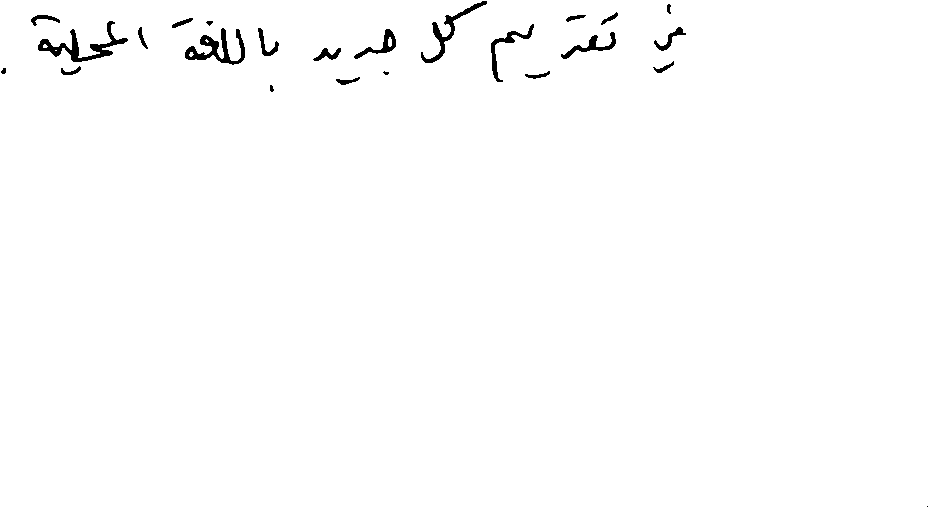 في تقديم كل جديد باللغة المحلية .